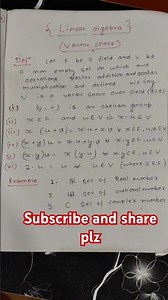 { Linear algebra }
(Vector space)
Defn Let F be a field and V be
a non empty set on which two
operations vector addition and scalar
multiplication are defined we say
V is a vector space over field
(i) (V, +) is an abelian group
(ii) x ∈ F and u ∈ V ⇒ x.u ∈ V
(iii) x (u+v) = x.u + x.v ∀ x ∈ F, u,v ∈ V
(iv) (x+y)u = x.u + y.u ∀ x,y ∈ F, u ∈ V
(v) (xy)u = x(y.u) ∀ x,y ∈ F, u ∈ V
(vi) 1.u = u ∀ u ∈ V (where 1 ∈ F)
Example: 1. R set of Real number
2. set of rational number
3. C set of complex number
Subscribe and share
plz